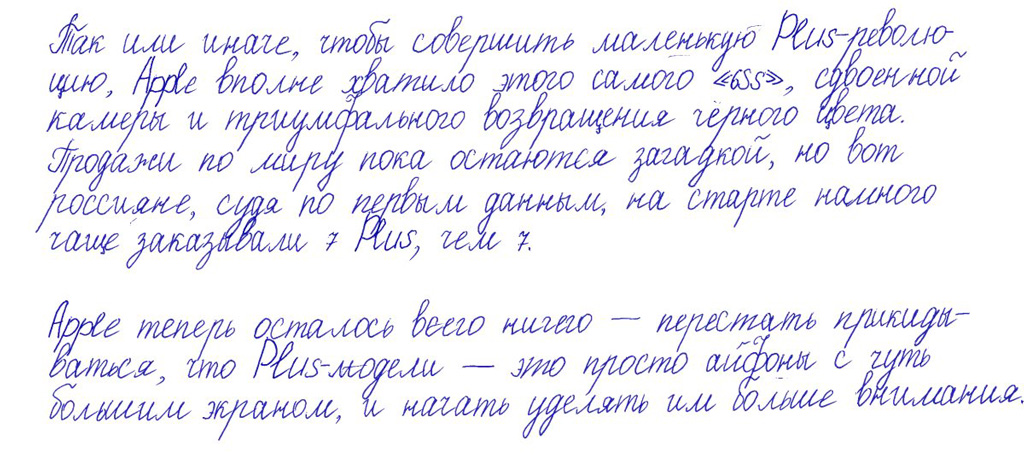 Так или иначе, чтобы совершить маленькую Plus-револю-
цию, Apple вполне хватило этого самого «6SS», сдвоенной
камеры и триумфального возвращения чёрного цвета.
Продажи по миру пока остаются загадкой, но вот
россияне, судя по первым данным, на старте намного
чаще заказывали 7 Plus, чем 7.
Apple теперь осталось всего ничего — перестать прикиды-
ваться, что Plus-модели — это просто айфоны с чуть
большим экраном, и начать уделять им больше внимания.